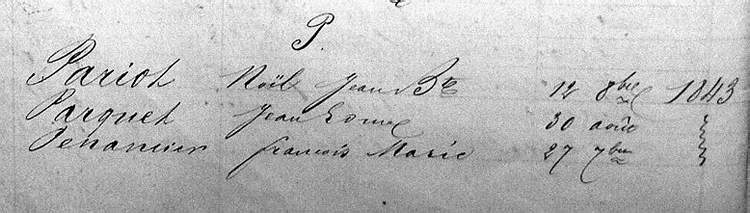 P.
Pariot Noël Jean Bte 12 8bre 1843
Parquet Jean Louis 30 août
Penancier François Marie 27 7bre